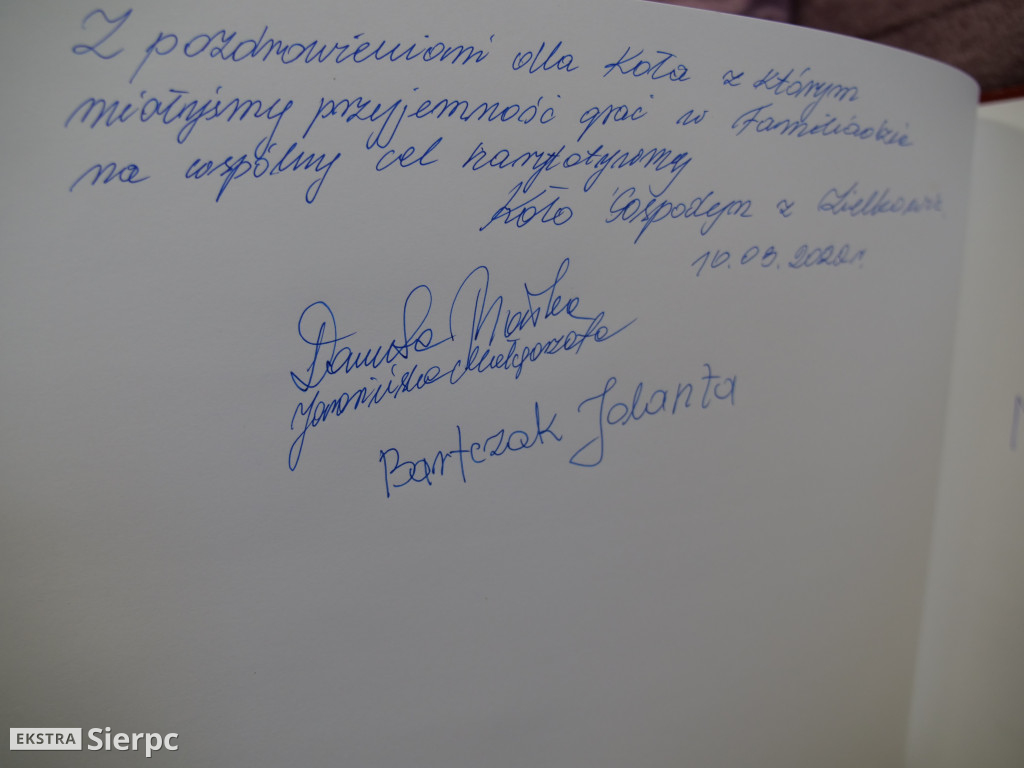 Z pozdrowieniami dla Koła z którym
miałyśmy przyjemność grać w Familiadzie
na wspólny cel karytatywny
Koło Gospodyń z Zielkowic
10.09.2022r.
Danuta
Małgorzata
Bartczak Jolanta
EKSTRA Sierpc